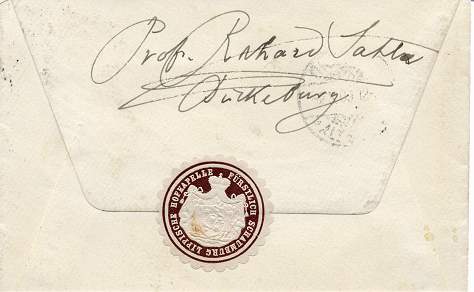 Prof. Richard Sahla
Bückeburg
FÜRSTLICH SCHAUMBURG LIPPISCHE HOFKAPELLE